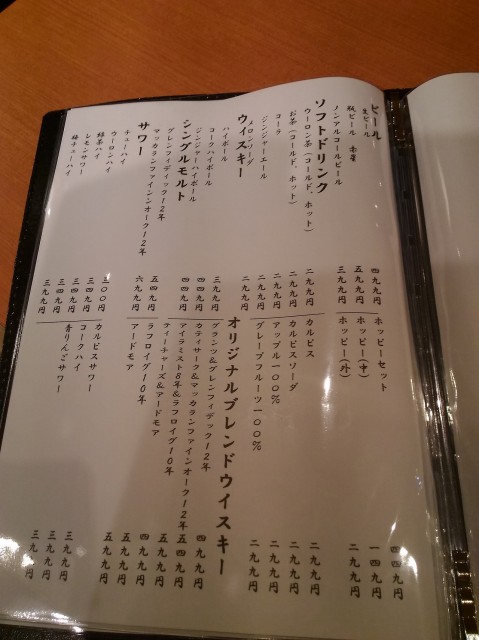 ビール
生ビール 四九九円
瓶ビール 赤星 五九九円
ノンアルコールビール 三九九円
ソフトドリンク
ウーロン茶（コールド、ホット） 二九九円
お茶（コールド、ホット） 二九九円
コーラ 二九九円
ジンジャーエール 二九九円
メロンソーダ 二九九円
ウィスキー
ハイボール 三九九円
コークハイボール 四四九円
ジンジャーハイボール 四四九円
シングルモルト
グレンフィディック１２年 五四九円
マッカランファインオーク１２年 六九九円
サワー
チューハイ 三〇〇円
ウーロンハイ 三四九円
緑茶ハイ 三四九円
レモンサワー 三四九円
梅チューハイ 三九九円
ホッピーセット 四四九円
ホッピー（中） 一四九円
ホッピー（外） 二九九円
カルピス 二九九円
カルピスソーダ 二九九円
アップル一〇〇％ 二九九円
グレープフルーツ一〇〇％ 二九九円
オリジナルブレンドウイスキー
グランツ＆グレンフィディック１２年 四九九円
カティサーク＆マッカランファインオーク１２年 五四九円
アイラミスト８年＆ラフロイグ１０年 五九九円
ティーチャーズ＆アードモア 四九九円
ラフロイグ１０年 五九九円
アードモア 五九九円
カルピスサワー 三九九円
コークハイ 三九九円
青りんごサワー 三九九円